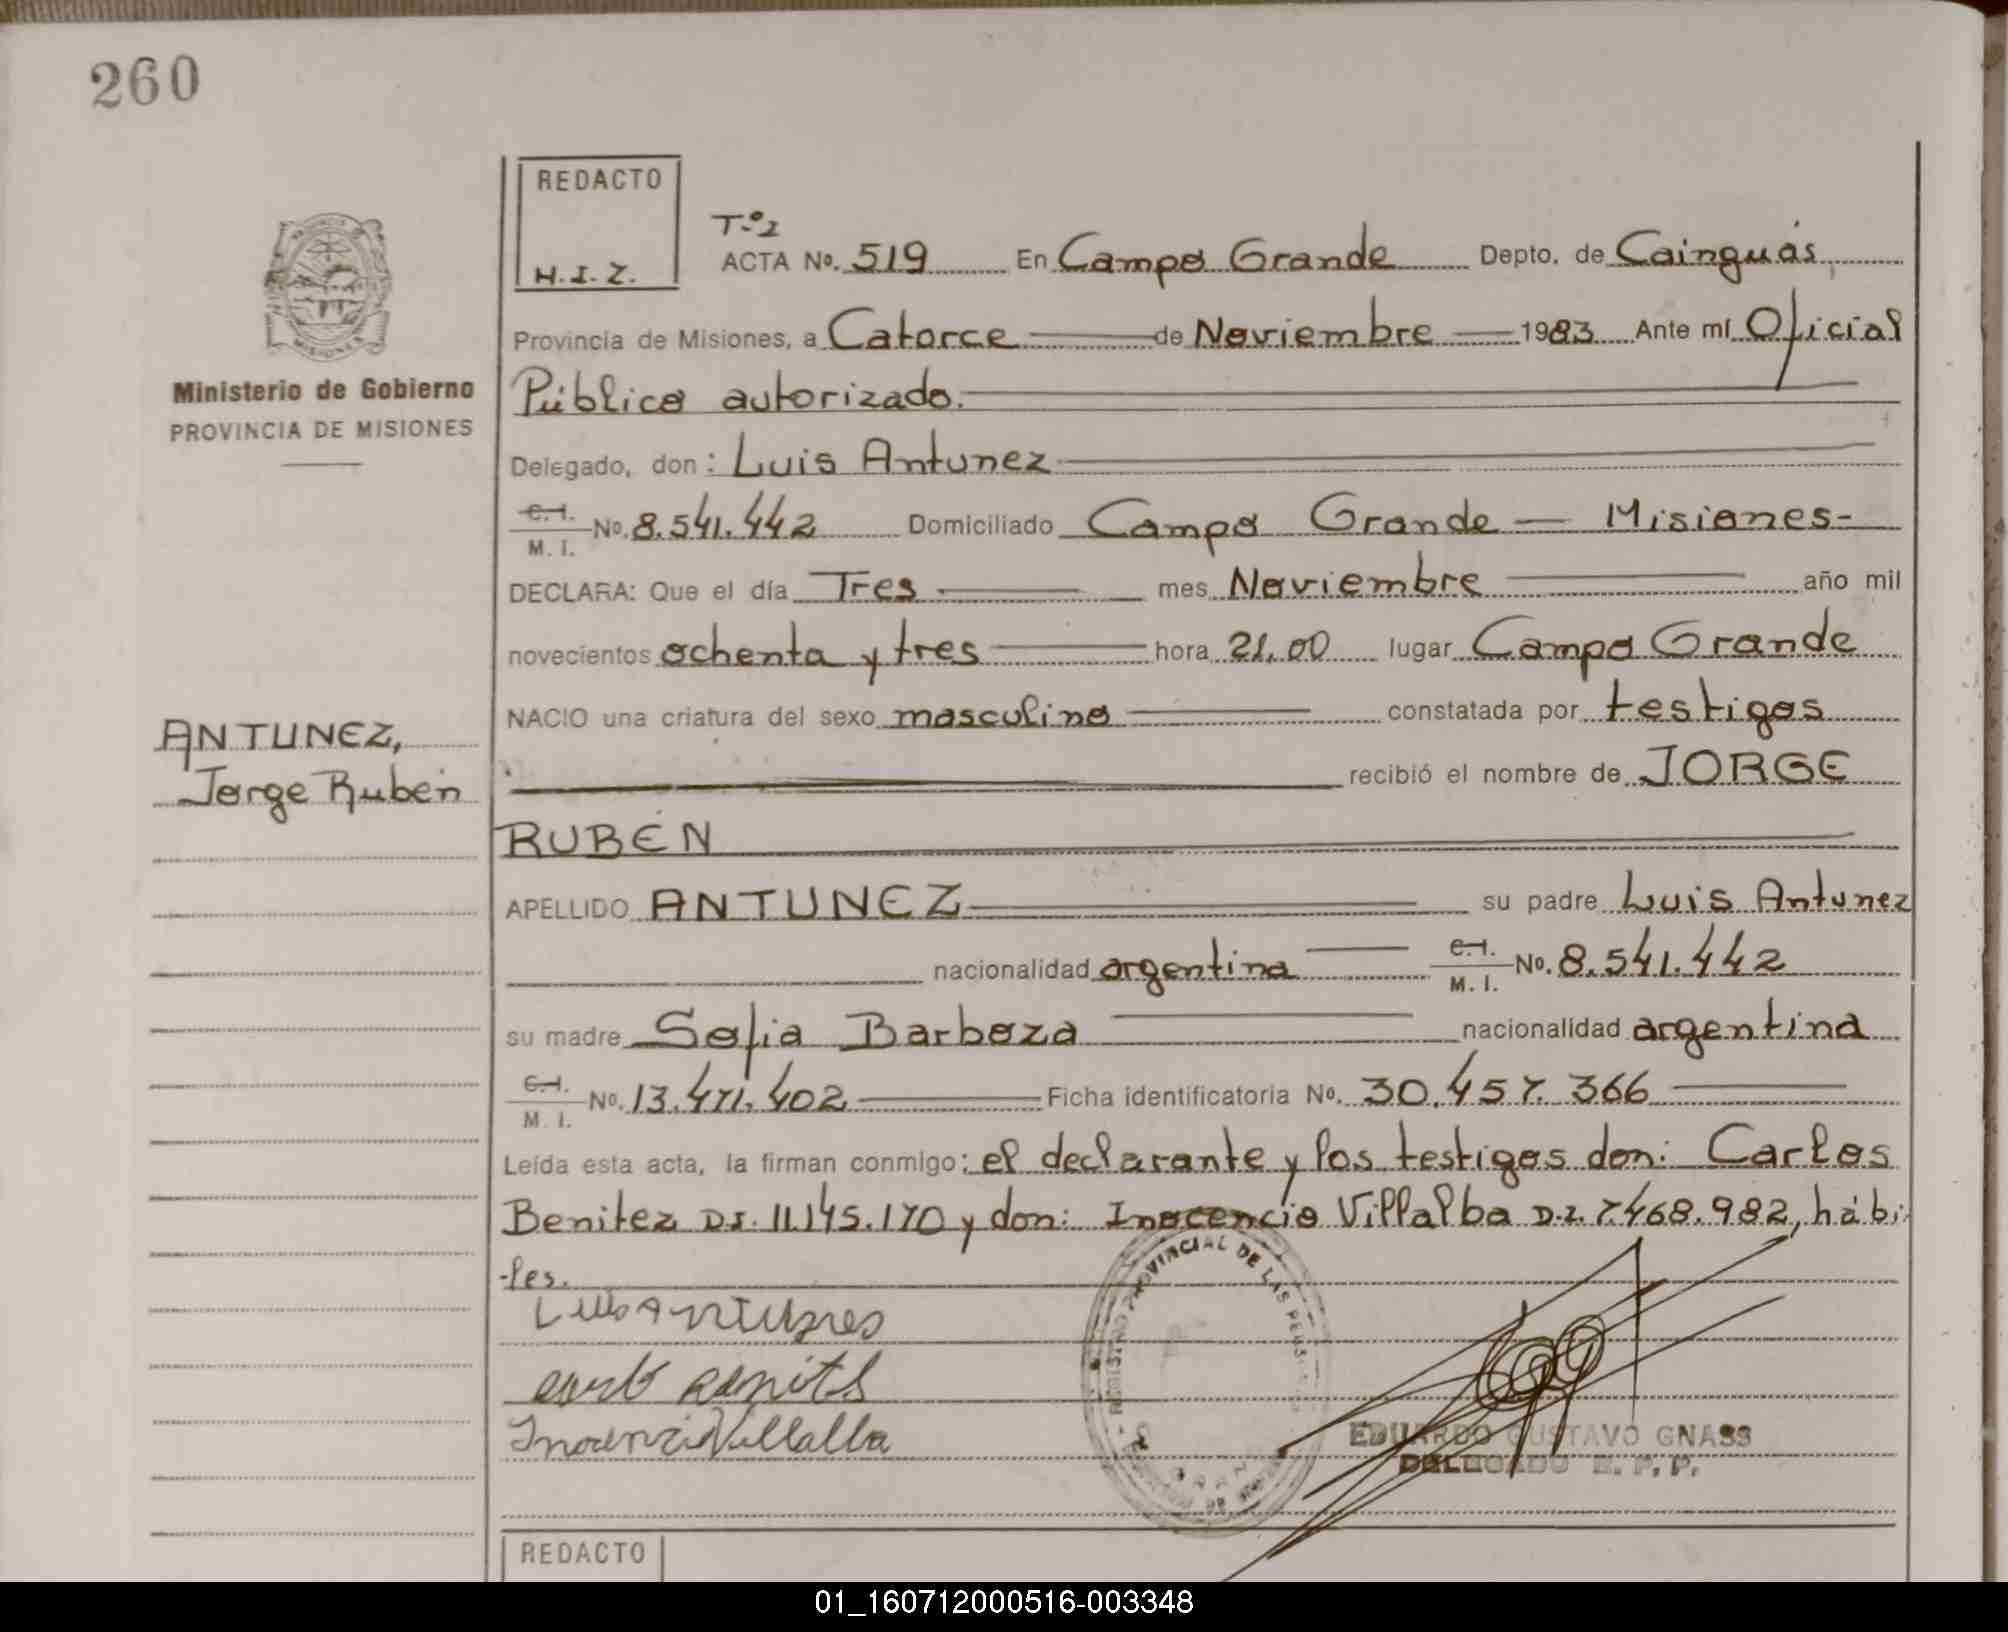 260
REDACTO
H.I.Z.
T.º2
ACTA Nº. 519 En Campo Grande Depto. de Cainguás
Provincia de Misiones, a Catorce de Noviembre 1983 Ante mí Oficial
Público autorizado.
Delegado, don: Luis Antunez
C.I. M.I. Nº. 8.541.442 Domiciliado Campo Grande — Misiones-
DECLARA: Que el día Tres mes Noviembre año mil
novecientos ochenta y tres hora 21,00 lugar Campo Grande
NACIO una criatura del sexo masculino constatada por testigos
recibió el nombre de JORGE
RUBÉN
APELLIDO ANTUNEZ su padre Luis Antunez
nacionalidad argentina C.I. M.I. Nº. 8.541.442
su madre Sofia Barboza nacionalidad argentina
C.I. M.I. Nº. 13.471.402 Ficha identificatoria Nº. 30.457.366
Leída esta acta, la firman conmigo: el declarante y los testigos don: Carlos
Benitez D.I. 11.145.170 y don: Inocencio Villalba D.I. 7.468.982, hábi
-les.
Ministerio de Gobierno
PROVINCIA DE MISIONES
MISIONES
ANTUNEZ,
Jorge Rubén
Luis Antunes
Inocencio Villalba
REGISTRO PROVINCIAL DE LAS PERSONAS
EDUARDO GUSTAVO GNASS
DELEGADO R. P. P.
REDACTO
01_160712000516-003348